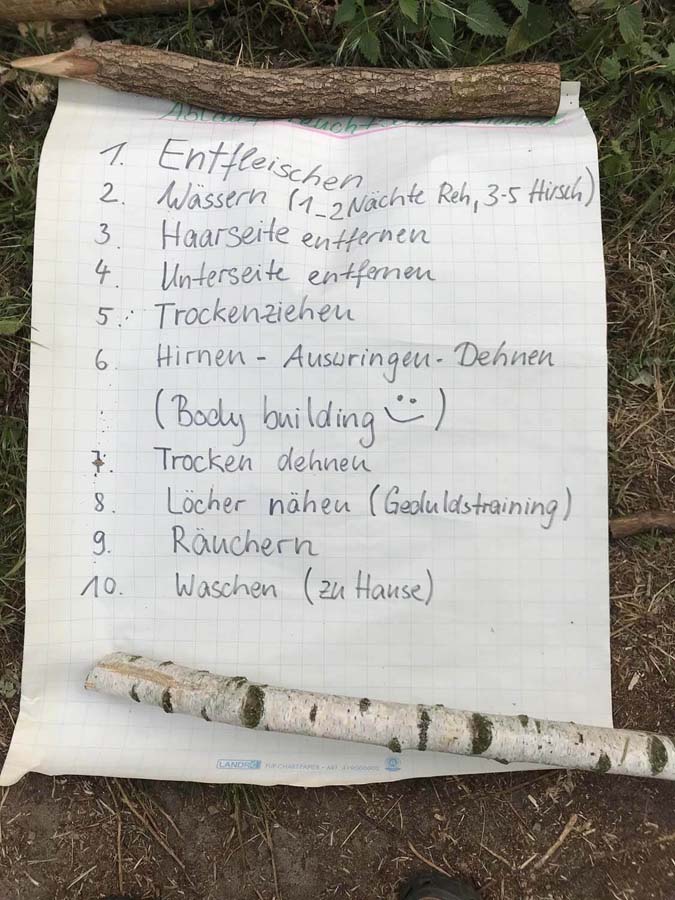 1. Entfleischen
2. Wässern (1-2 Nächte Reh, 3-5 Hirsch)
3. Haarseite entfernen
4. Unterseite entfernen
5. Trockenziehen
6. Hirnen - Auswringen - Dehnen
(Body building)
7. Trocken dehnen
8. Löcher nähen (Geduldstraining)
9. Räuchern
10. Waschen (zu Hause)
LANDRÉ